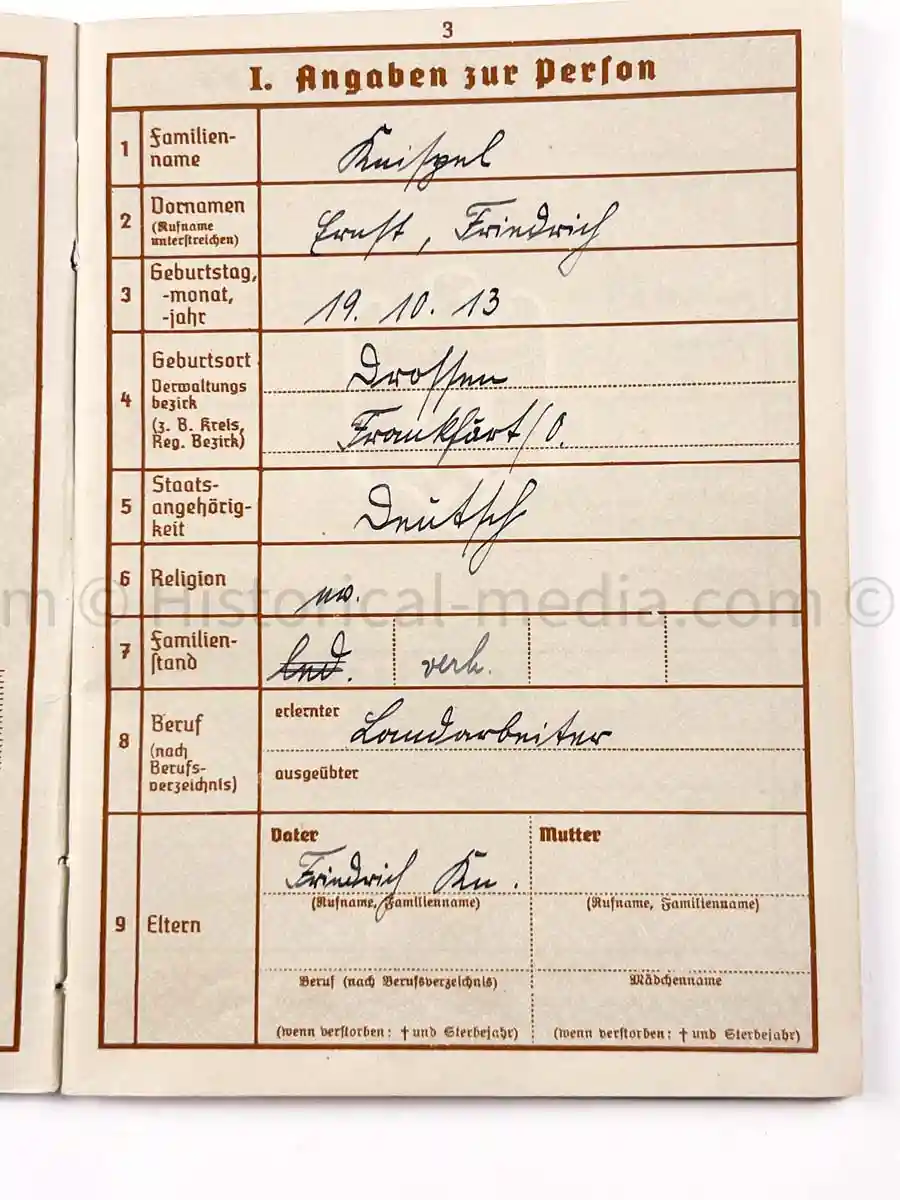 3
I. Angaben zur Person
1
Familien-
name
Knispel
2
Vornamen
(Rufname
unterstreichen)
Ernst, Friedrich
3
Geburtstag,
-monat,
-jahr
19. 10. 13
4
Geburtsort
Verwaltungs
bezirk
(z. B. Kreis,
Reg. Bezirk)
Drossen
Frankfurt/O.
5
Staats-
angehörig-
keit
Deutsch
6
Religion
ev.
m © Historical-media.com ©
7
Familien-
stand
led. verh.
8
Beruf
(nach
Berufs-
verzeichnis)
erlernter
Landarbeiter
ausgeübter
9
Eltern
Vater
Friedrich Kn.
(Rufname, Familienname)
Beruf (nach Berufsverzeichnis)
(wenn verstorben: † und Sterbejahr)
Mutter
(Rufname, Familienname)
Mädchenname
(wenn verstorben: † und Sterbejahr)